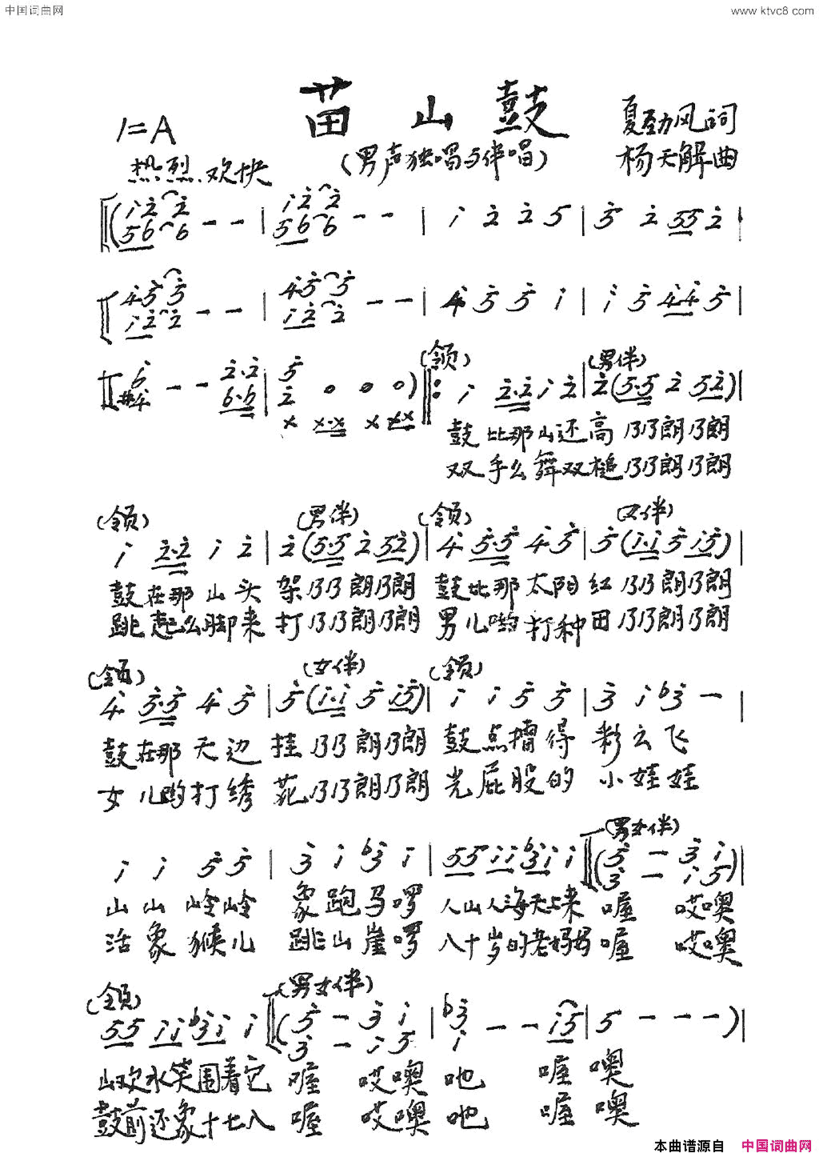 中国词曲网
www.ktvc8.com
苗山鼓
1=A
夏劲风词
热烈.欢快
(男声独唱与伴唱)
杨天解曲
(领) (男伴)
鼓比那山还高乃乃朗乃朗
双手么舞双槌乃乃朗乃朗
(领) (男伴) (领) (女伴)
鼓在那山头架乃乃朗乃朗 鼓比那太阳红乃乃朗乃朗
跳起么脚来打乃乃朗乃朗 男儿哟打种田乃乃朗乃朗
(领) (女伴) (领)
鼓在那天边挂乃乃朗乃朗 鼓点擂得彩云飞
女儿哟打绣花乃乃朗乃朗 光屁股的小娃娃
(男女伴)
山山岭岭 象跑马啰 人山人海天上来 喔 哎噢
活象猴儿 跳山崖啰 八十岁的老妈妈 喔 哎噢
(领) (男女伴)
山欢水笑围着它 喔 哎噢吔 喔噢
鼓前还象十七八 喔 哎噢吔 喔噢
本曲谱源自 中国词曲网